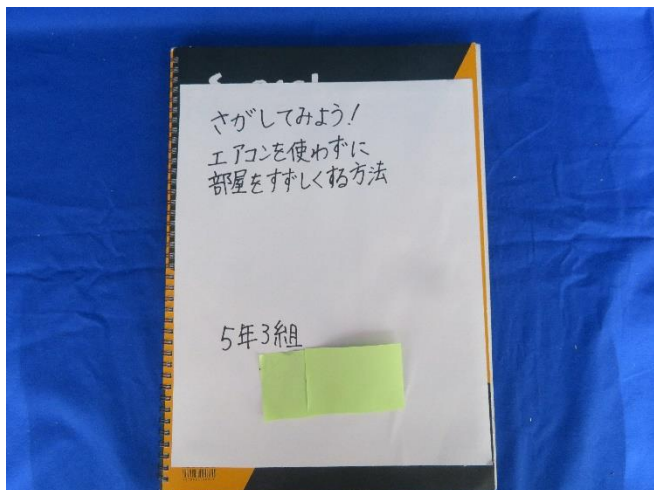 さがしてみよう！
エアコンを使わずに
部屋をすずしくする方法
5年3組